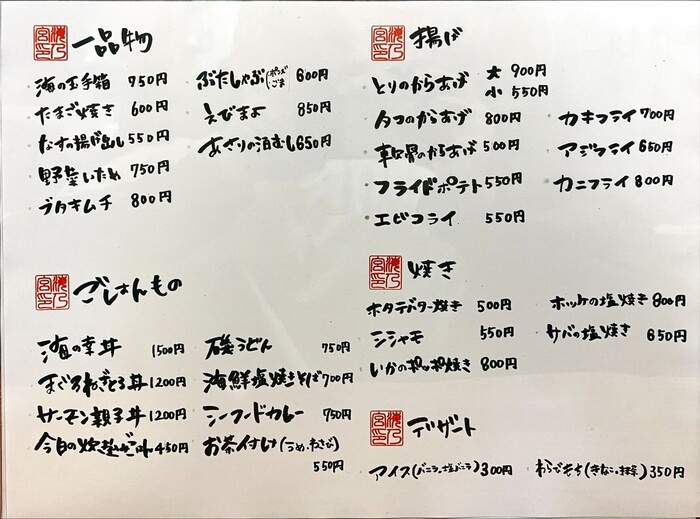 一品物
海の玉手箱 750円
たまご焼き 600円
なすの揚げ出し 550円
野菜いため 750円
ブタキムチ 800円
ぶたしゃぶ(ポンズ ごま) 600円
えびまよ 850円
あさりの酒むし 650円
ごはんもの
海の幸丼 1500円
まぐろねぎとろ丼 1200円
サーモン親子丼 1200円
今日の炊き込みごはん 450円
磯うどん 750円
海鮮塩焼きそば 700円
シーフードカレー 750円
お茶付け(うめ、わさび)
550円
揚げ
とりのからあげ 大 900円
小 550円
タコのからあげ 800円
軟骨のからあげ 500円
フライドポテト 550円
エビフライ 550円
カキフライ 700円
アジフライ 650円
カニフライ 800円
焼き
ホタテバター焼き 500円
シシャモ 550円
いかのポッポ焼き 800円
ホッケの塩焼き 800円
サバの塩焼き 650円
デザート
アイス(バニラ、塩バニラ) 300円
わらびもち(きなこ、抹茶) 350円